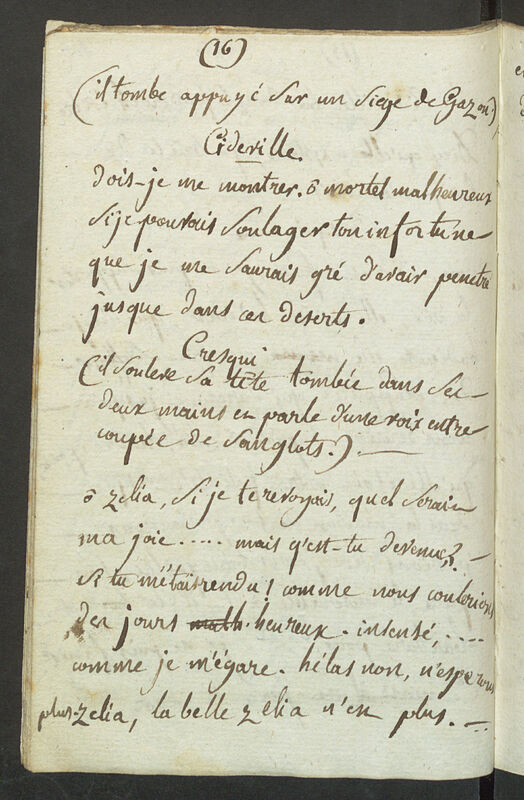 (16)
(il tombe appuyé sur un siege de Gazon.)
Cideville.
dois-je me montrer. ô mortel malheureux
si je pouvais soulager ton infortune
que je me saurais gré d'avoir penetré
jusque dans ces deserts.
Cresqui
(il souleve sa tête tombée dans ses
deux mains et parle d'une voix entre
coupée de sanglots.)
ô zelia, si je te revoyais, quel serait
ma joie ..... mais q'est-tu devenue? -
si tu m'étais rendu! comme nous coulerions
des jours math. heureux. insensé, ....
comme je m'égare. hélas non, n'esperons
plus-zelia, la belle zelia n'est plus. -